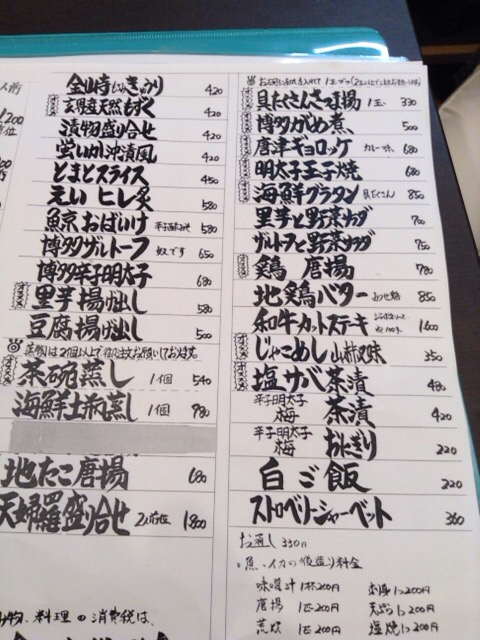 人前
金山寺きゅうり 420
玄界産天然もずく 420
漬物盛り合せ 420
蛍いか沖漬風 420
とまとスライス 450
えいヒレ炙 580
鯨おばいけ 580
博多ザル卜ーフ 奴です 650
博多辛子明太子 680
里芋揚げ出し 580
豆腐揚げ出し 500
蒸物は2個以上で御注文お願いしております
茶碗蒸し 1個 540
海鮮土瓶蒸し 1個 780
地たこ唐揚 680
天婦羅盛り合せ 2人前位 1800
具だくさんさつま揚 1玉 330
博多がめ煮 500
唐津ギョロッケ カレー味 680
明太子玉子焼 680
海鮮グラタン 具だくさん 850
里芋と野菜サラダ 700
ザルトーフと野菜サラダ 750
鶏 唐揚 780
地鶏バター 850
和牛カットステキ 1600
じゃこめし 山椒風味 350
塩サバ茶漬 480
辛子明太子 梅 茶漬 420
辛子明太子 梅 おにぎり 220
白ご飯 220
ストロベリーシャーベット 360
お通し 330円
魚、イカの後造り料金
味噌汁 1杯200円 刺身 1つ200円
唐揚 1匹200円 天ぷら 1つ200円
荒炊 1匹200円 塩焼 1つ200円
料理の消費税は、